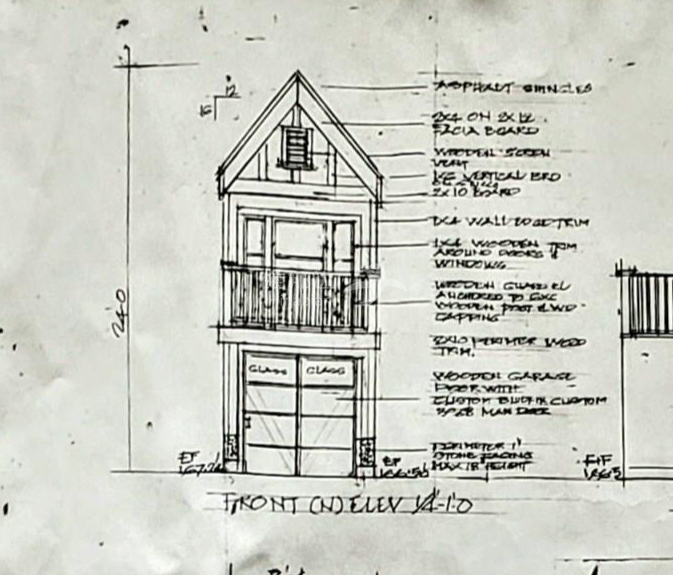 ASPHALT SHINGLES
12
2X4 ON 2X12
FACIA BOARD
WOODEN SCREEN
VENT
1X6 VERTICAL BRD
2X10 BOARD
1X4 WALL EDGE TRIM
1X4 WOODEN TRIM
AROUND DOORS &
WINDOWS
WOODEN GUARD RL
ANCHORED TO 6X6
WOODEN POST & WD
CAPPING
24'.0
2X10 PERIMETER WOOD
TRIM.
GLASS GLASS
WOODEN GARAGE
DOOR WITH
CUSTOM BUILT IN CUSTOM
MAN DOOR
PERIMETER 1'
STONE FACING
MAX 18" HEIGHT
EF
EF
FRONT (N) ELEV 1/4-1.0